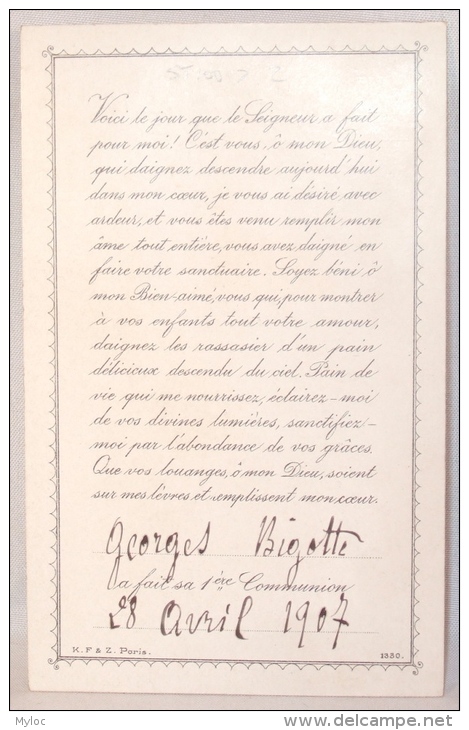 Voici le jour que le Seigneur a fait
pour moi! C'est vous, ô mon Dieu,
qui daignez descendre aujourd'hui
dans mon cœur, je vous ai désiré avec
ardeur, et vous êtes venu remplir mon
âme tout entière, vous avez daigné en
faire votre sanctuaire. Soyez béni ô
mon Bien-aimé, vous qui, pour montrer
à vos enfants tout votre amour,
daignez les rassasier d'un pain
délicieux descendu du ciel. Pain de
vie qui me nourrissez, éclairez-moi
de vos divines lumières, sanctifiez-
moi par l'abondance de vos grâces.
Que vos louanges, ô mon Dieu, soient
sur mes lèvres et emplissent mon cœur.
Georges Bigotte
a fait sa 1ère Communion
28 Avril 1907
K. F & Z. Paris. 1330.
Myloc delcampe.net